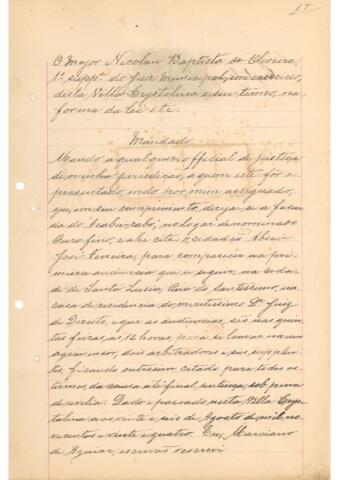 17
O Major Nicolau Baptista de Oliveira,
1º suppe. do Juiz Municipal, em exercicio,
desta Villa Crystalina e seu termo, na
forma da lei etc.
Mandado
Mando a qualquer official de justiça
de minha jurisdicção, a quem este fôr a
presentado, indo por mim assignado,
que, em seu cumprimento, dirija-se a fazen
da do no logar denominado
Ouro fino, e ahi cite o cidadão
José Pereira, para comparecer na pri
meira audiencia que se seguir, na cida
de de Santa Luzia, em
casa de residencia do meritissimo Dr. Juiz
de Direito, e que as audiencias, são nas quin
tas feiras, as 12 horas, para se louvar na um
agrimensor, dois arbitradores e seus supplen
tes, ficando outrossim citado para todos os
termos da causa até final sentença, sob pena
de revelia. Dado e passado nesta Villa Crys
talina aos vinte e seis de Agosto de mil no
vecentos e vinte e quatro. Eu, Marciano
de Aguiar, escrivão escrevi.